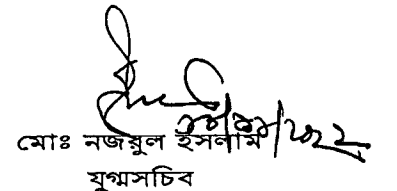 মোঃ নজরুল ইসলাম
যুগ্মসচিব